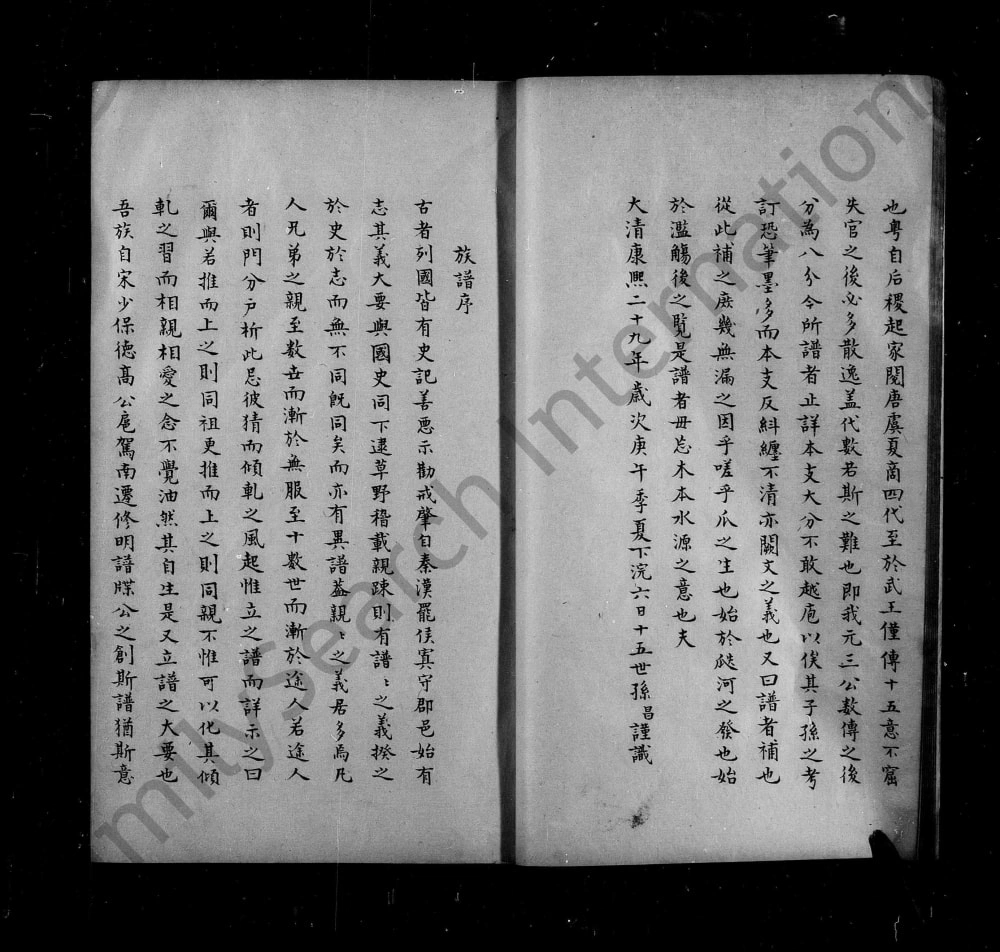 也粤自后稷起家閱唐虞夏商四代至於武王僅傳十五意不窋
失官之後必多散逸盖代數若斯之難也即我元三公數傳之後
分為八分今所譜者止詳本支大分不敢越庖以俟其子孫之考
訂恐筆墨多而本支反糾纏不清亦闕文之義也又曰譜者補也
從此補之庶幾無漏之因乎嗟乎瓜之生也始於瓞河之發也始
於濫觴後之覧是譜者毋忘木本水源之意也夫
大清康熙二十九年歲次庚午季夏下浣六日十五世孫昌謹識
族譜序
古者列國皆有史記善悪示勸戒肇自秦漢罷侯寘守郡邑始有
志其義大要與國史同下逮草野稽載親踈則有譜譜之義揆之
於史於志而無不同旣同矣而亦有異譜葢親親之義居多焉凡
人兄弟之親至数世而漸於無服至十數世而漸於途人若途人
者則門分戶析此忌彼猜而傾軋之風起惟立之譜而詳示之曰
爾與若推而上之則同祖更推而上之則同親不惟可以化其傾
軋之習而相親相愛之念不覺油然其自生是又立譜之大要也
吾族自宋少保德髙公扈駕南遷修明譜牒公之創斯譜猶斯意
FamilySearch International